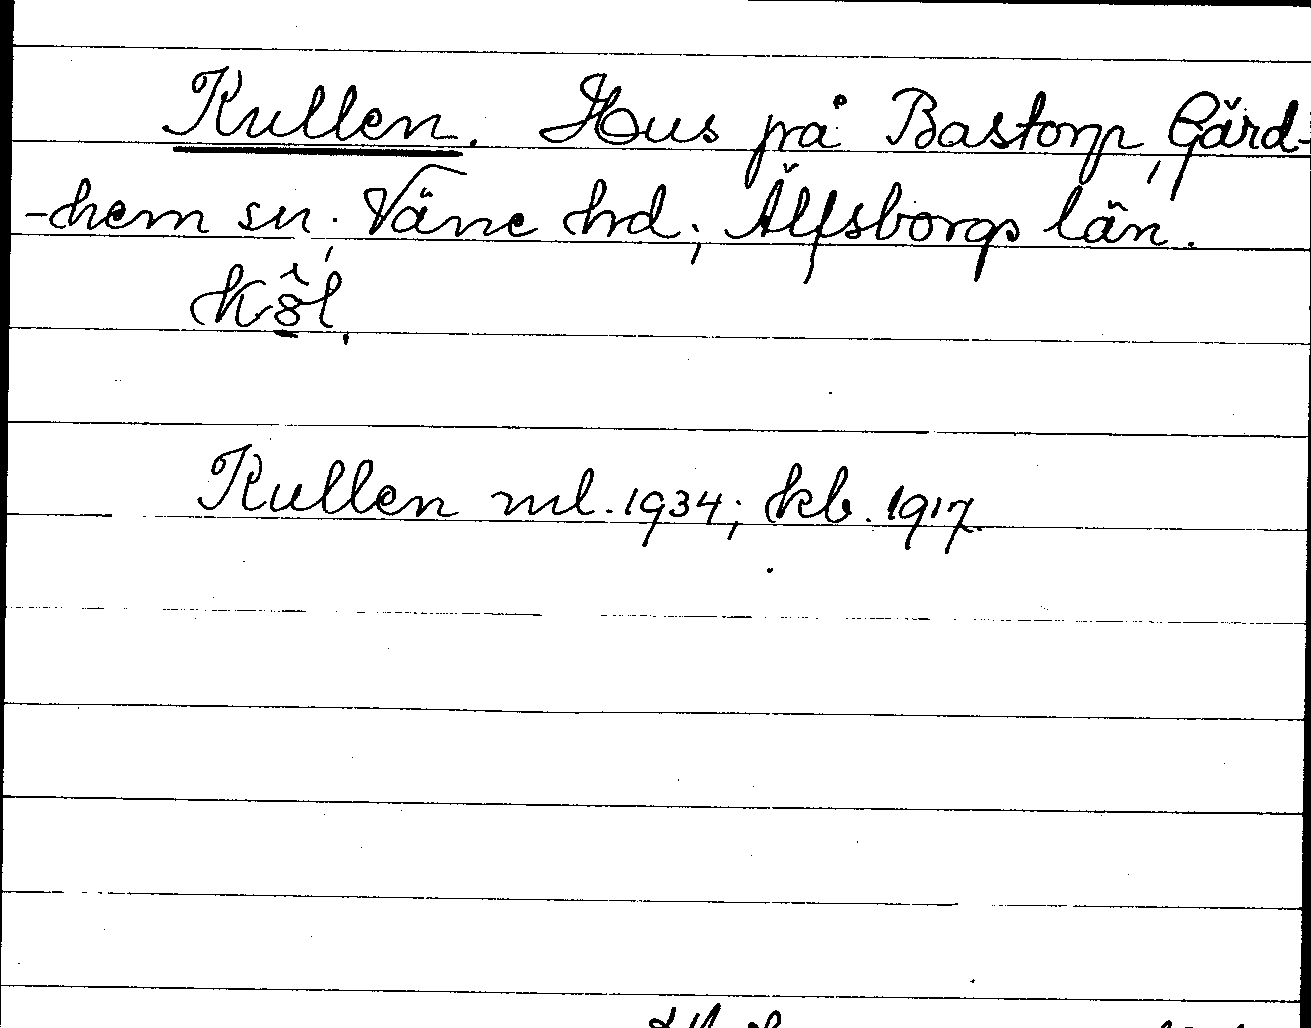 Kullen. Hus på Bastorp, Gärd-
-hem sn, Väne hd; Älfsborgs län.
Kullen ml. 1934; kb. 1917.